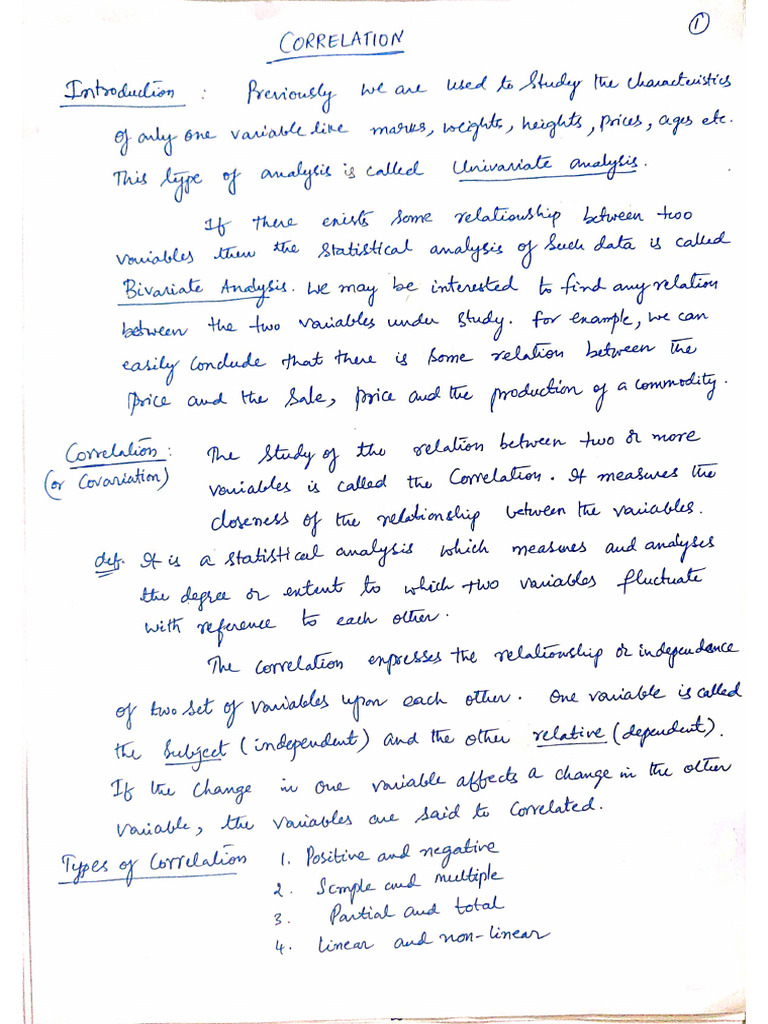 ①
CORRELATION
Introduction : Previously we are used to study the characteristics
of only one variable like marks, weights, heights, prices, ages etc.
This type of analysis is called Univariate analysis.
If there exists some relationship between two
variables then the statistical analysis of such data is called
Bivariate Analysis. We may be interested to find any relation
between the two variables under study. For example, we can
easily conclude that there is some relation between the
price and the sale, price and the production of a commodity.
Correlation : The study of the relation between two or more
(or Covariation) variables is called the Correlation. It measures the
closeness of the relationship between the variables.
def. It is a statistical analysis which measures and analyses
the degree or extent to which two variables fluctuate
with reference to each other.
The correlation expresses the relationship or independence
of two set of variables upon each other. One variable is called
the Subject (independent) and the other relative (dependent).
If the change in one variable affects a change in the other
variable, the variables are said to correlated.
Types of Correlation 1. Positive and negative
2. Simple and multiple
3. Partial and total
4. linear and non-linear